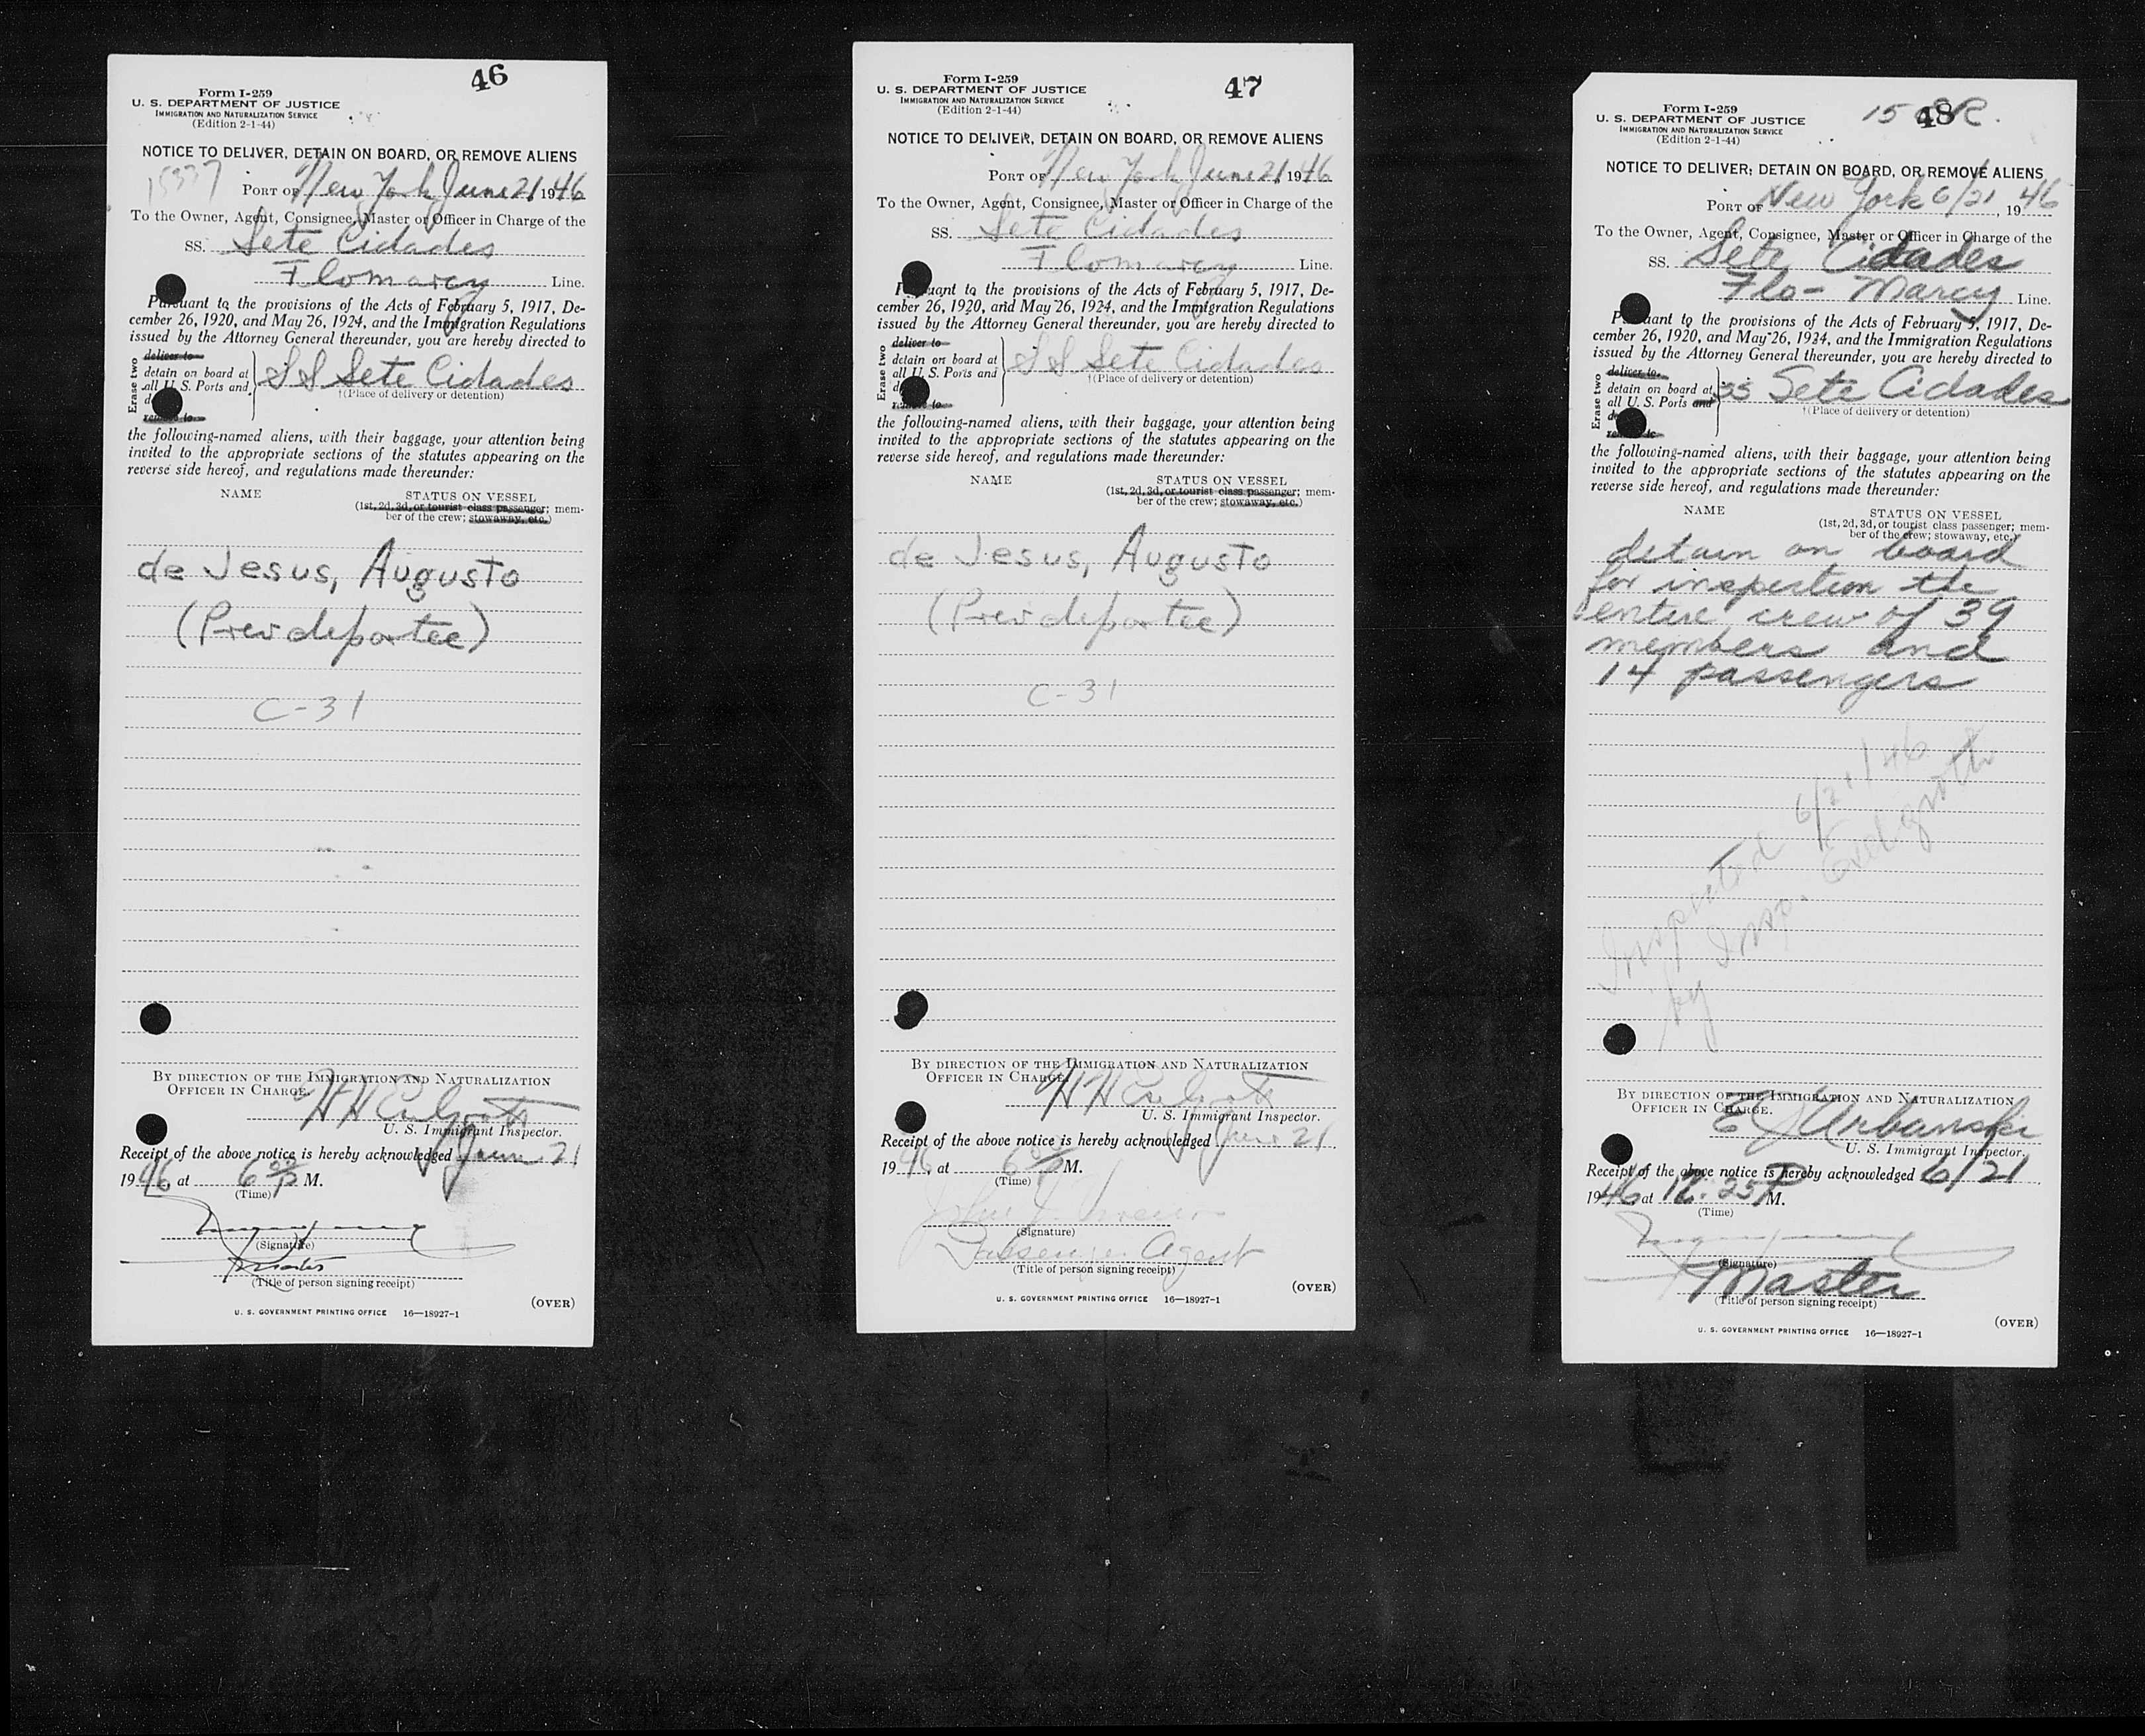 46
Form I-259
U. S. DEPARTMENT OF JUSTICE
IMMIGRATION AND NATURALIZATION SERVICE
(Edition 2-1-44)
NOTICE TO DELIVER, DETAIN ON BOARD, OR REMOVE ALIENS
15337
PORT OF New York June 21 1946
To the Owner, Agent, Consignee, Master or Officer in Charge of the
SS. Sete Cidades
Flomarcy Line.
Pursuant to the provisions of the Acts of February 5, 1917, De-
cember 26, 1920, and May 26, 1924, and the Immigration Regulations
issued by the Attorney General thereunder, you are hereby directed to
Erase two
deliver to
detain on board at
all U. S. Ports and
remove to
S S Sete Cidades
†(Place of delivery or detention)
the following-named aliens, with their baggage, your attention being
invited to the appropriate sections of the statutes appearing on the
reverse side hereof, and regulations made thereunder:
NAME STATUS ON VESSEL
(1st, 2d, 3d, or tourist class passenger; mem-
ber of the crew; stowaway, etc.)
de Jesus, Augusto
(Prev deportee)
C-31
BY DIRECTION OF THE IMMIGRATION AND NATURALIZATION
OFFICER IN CHARGE.
U. S. Immigrant Inspector.
Receipt of the above notice is hereby acknowledged June 21
1946 at 6 00 P M.
(Time)
(Signature)
Master
(Title of person signing receipt)
(OVER)
U. S. GOVERNMENT PRINTING OFFICE 16—18927-1
47
Form I-259
U. S. DEPARTMENT OF JUSTICE
IMMIGRATION AND NATURALIZATION SERVICE
(Edition 2-1-44)
NOTICE TO DELIVER, DETAIN ON BOARD, OR REMOVE ALIENS
PORT OF New York June 21 1946
To the Owner, Agent, Consignee, Master or Officer in Charge of the
SS. Sete Cidades
Flomarcy Line.
Pursuant to the provisions of the Acts of February 5, 1917, De-
cember 26, 1920, and May 26, 1924, and the Immigration Regulations
issued by the Attorney General thereunder, you are hereby directed to
Erase two
deliver to
detain on board at
all U. S. Ports and
remove to
S S Sete Cidades
†(Place of delivery or detention)
the following-named aliens, with their baggage, your attention being
invited to the appropriate sections of the statutes appearing on the
reverse side hereof, and regulations made thereunder:
NAME STATUS ON VESSEL
(1st, 2d, 3d, or tourist class passenger; mem-
ber of the crew; stowaway, etc.)
de Jesus, Augusto
(Prev deportee)
C-31
BY DIRECTION OF THE IMMIGRATION AND NATURALIZATION
OFFICER IN CHARGE.
U. S. Immigrant Inspector.
Receipt of the above notice is hereby acknowledged June 21
1946, at 6 00 P M.
(Time)
John J.
(Signature)
Passenger Agent
(Title of person signing receipt)
(OVER)
U. S. GOVERNMENT PRINTING OFFICE 16—18927-1
48
Form I-259
U. S. DEPARTMENT OF JUSTICE
IMMIGRATION AND NATURALIZATION SERVICE
(Edition 2-1-44)
NOTICE TO DELIVER, DETAIN ON BOARD, OR REMOVE ALIENS
PORT OF New York 6/21, 1946
To the Owner, Agent, Consignee, Master or Officer in Charge of the
SS. Sete Cidades
Flo-Marcy Line.
Pursuant to the provisions of the Acts of February 5, 1917, De-
cember 26, 1920, and May 26, 1924, and the Immigration Regulations
issued by the Attorney General thereunder, you are hereby directed to
Erase two
deliver to
detain on board at
all U. S. Ports and
remove to
SS Sete Cidades
†(Place of delivery or detention)
the following-named aliens, with their baggage, your attention being
invited to the appropriate sections of the statutes appearing on the
reverse side hereof, and regulations made thereunder:
NAME STATUS ON VESSEL
(1st, 2d, 3d, or tourist class passenger; mem-
ber of the crew; stowaway, etc.)
detain on board
for inspection the
entire crew of 39
members and
14 passengers
Inspected 6/21/46
by Insp.
BY DIRECTION OF THE IMMIGRATION AND NATURALIZATION
OFFICER IN CHARGE.
E J Urbanski
U. S. Immigrant Inspector.
Receipt of the above notice is hereby acknowledged 6/21
1946 at 12:25 P M.
(Time)
(Signature)
Master
(Title of person signing receipt)
(OVER)
U. S. GOVERNMENT PRINTING OFFICE 16—18927-1